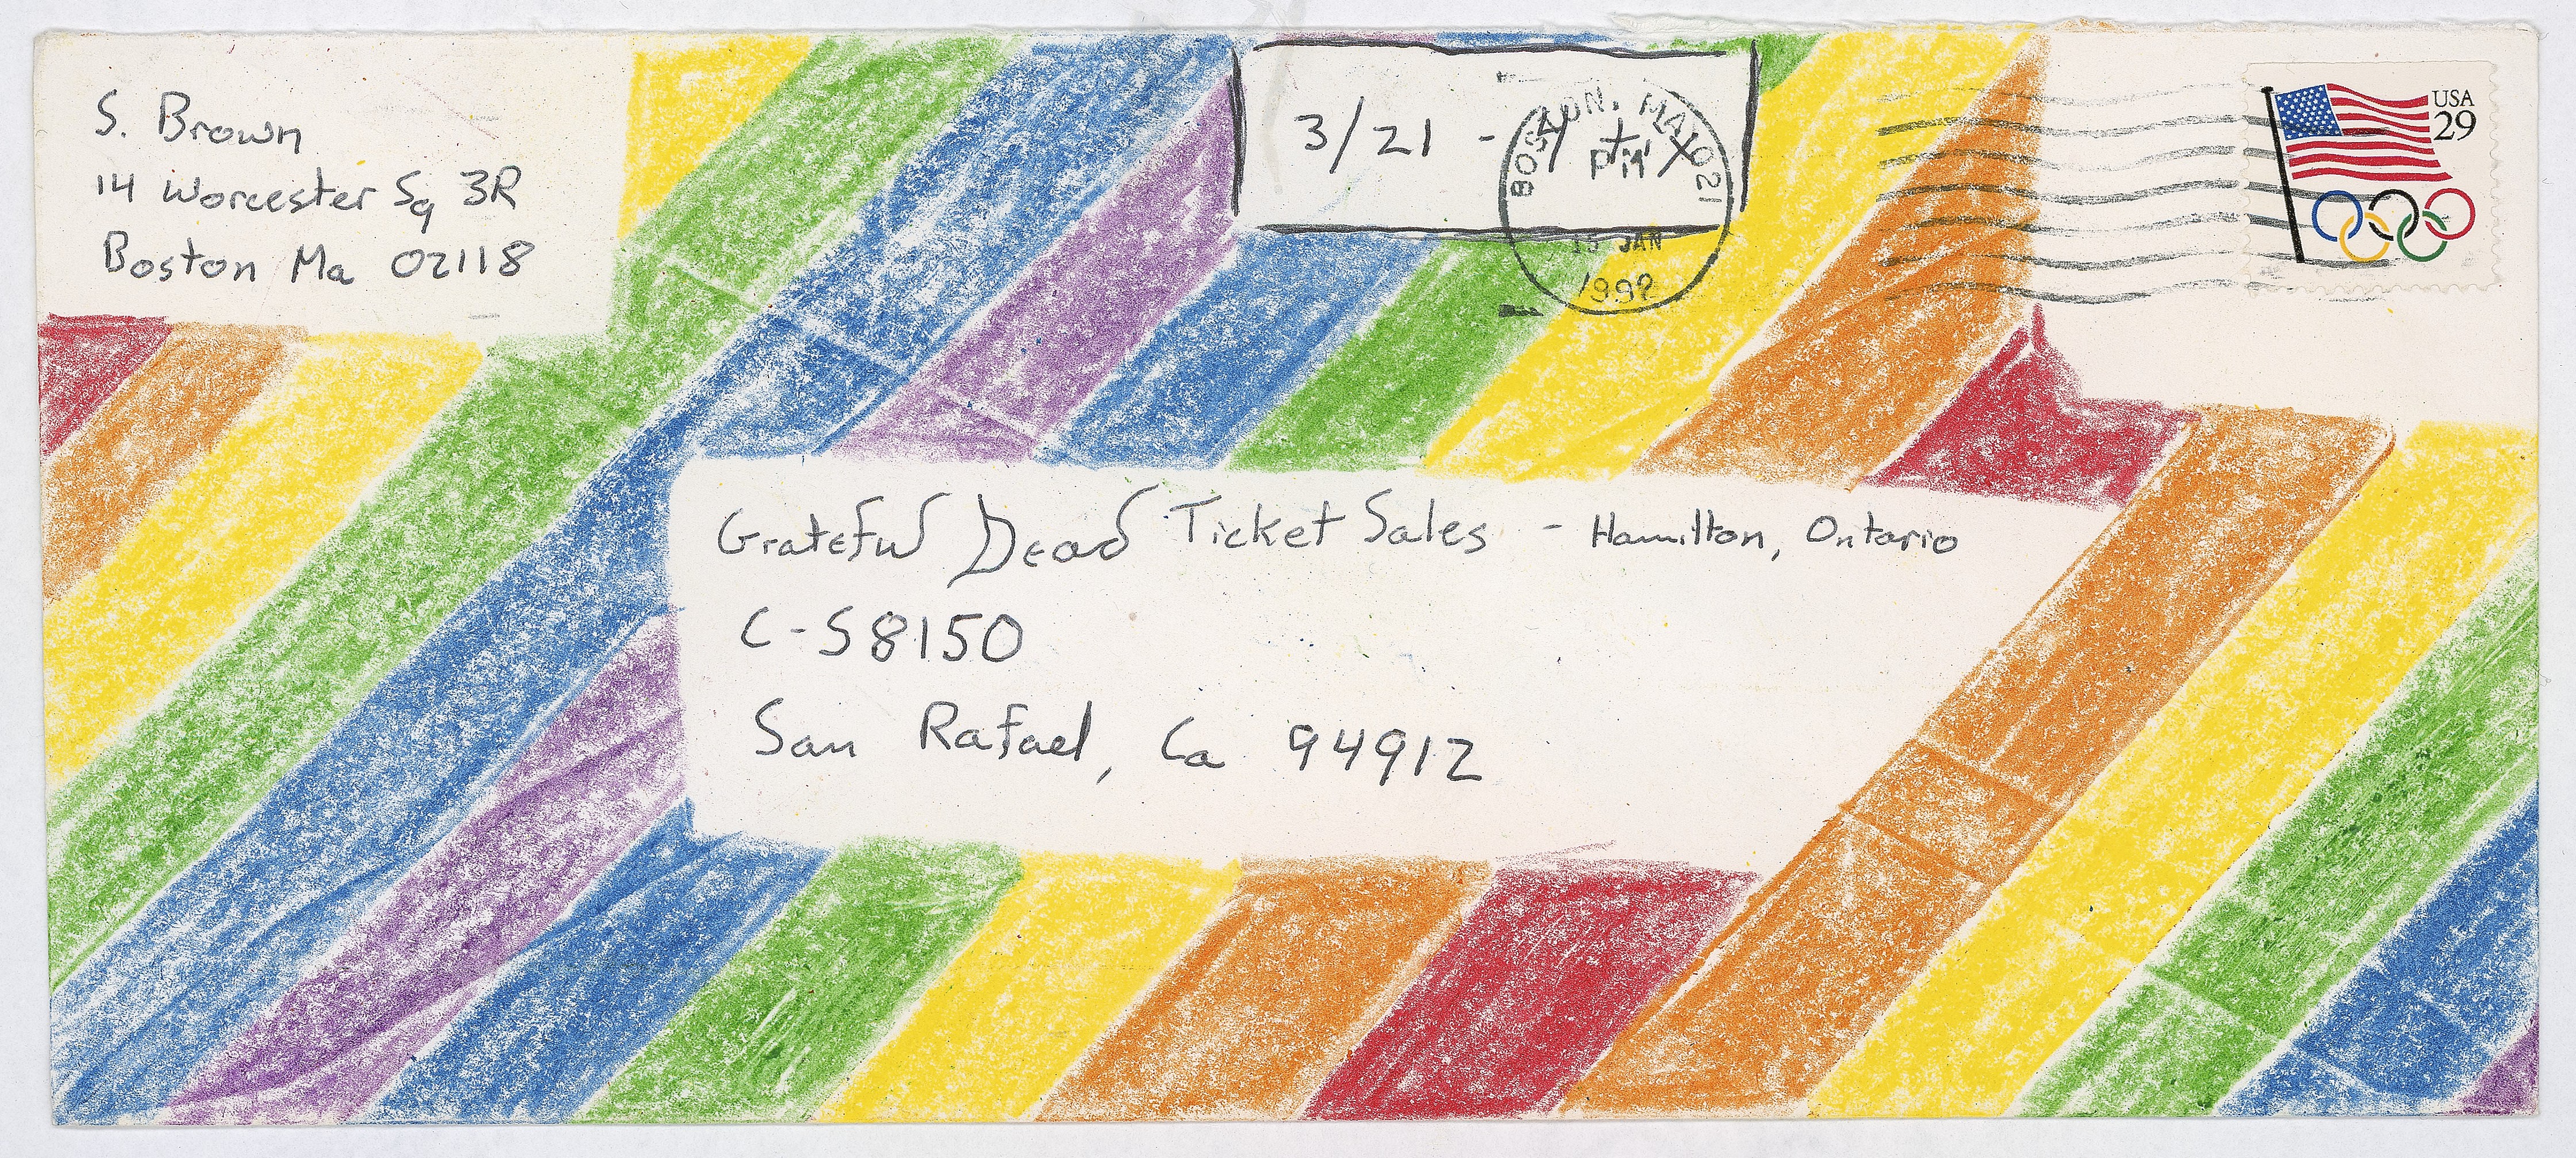 S. Brown
14 Worcester Sq 3R
Boston Ma 02118
3/21 -
BOSTON, MA 021
PM
15 JAN
1992
USA
29
Grateful Dead Ticket Sales - Hamilton, Ontario
C-S8150
San Rafael, Ca 94912